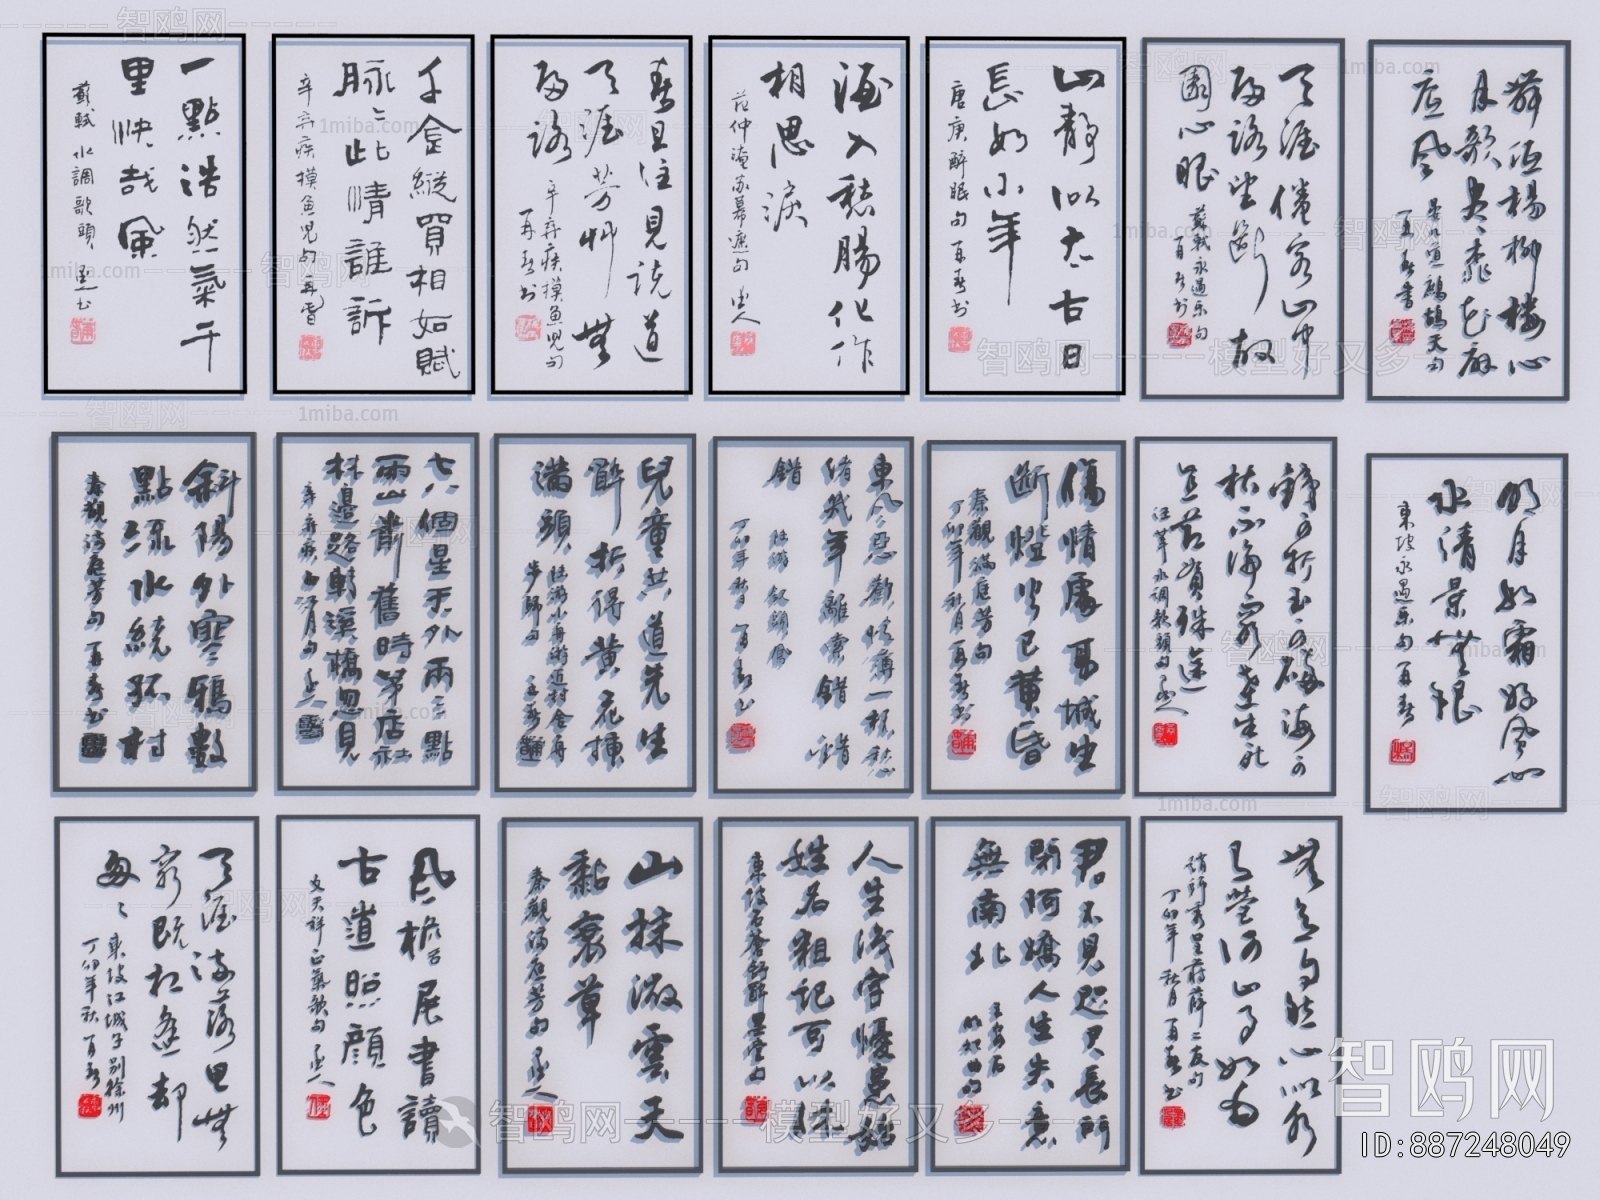 一點浩然氣千
里快哉風
蘇軾 水調歌頭
千金縱買相如賦
脉々此情誰訴
辛弃疾摸魚兒句
春且住見說道
天涯芳草無
歸路
辛弃疾摸魚兒句
酒入愁腸化作
相思淚
范仲淹苏幕遮句
山靜似太古日
長如小年
唐庚醉眠句
天涯倦客山中
歸路望斷故
園心眼
蘇軾永遇樂句
舞低楊柳樓心
月歌盡桃花扇
底風
晏几道鷓鴣天句
斜陽外寒鴉數
點流水繞孤村
秦觀滿庭芳句
七八個星天外兩三點
雨山前舊時茅店社
林邊路轉溪橋忽見
辛弃疾西江月句
兒童共道先生
醉折得黃花插
滿頭
東風惡歡情薄一杯愁
緒幾年離索錯錯
錯
陸游釵頭鳳
丁卯年秋日
傷情處高城望
斷燈火已黃昏
秦觀滿庭芳句
丁卯年秋月
明月如霜好風如
水清景無限
東坡永遇樂句
天涯流落思無
窮既相逢却
匆々
東坡江城子別徐州
丁卯年秋
風檐展書讀
古道照顏色
文天祥正氣歌句
山抹微雲天
黏衰草
秦觀滿庭芳句
人生識字憂患始
姓名粗記可以休
東坡石蒼舒醉墨堂句
君不見咫尺長門
閉阿嬌人生失意
無南北
王安石
明妃曲句
丁卯年秋月
智鸥网
1miba.com
模型好又多
ID:887248049